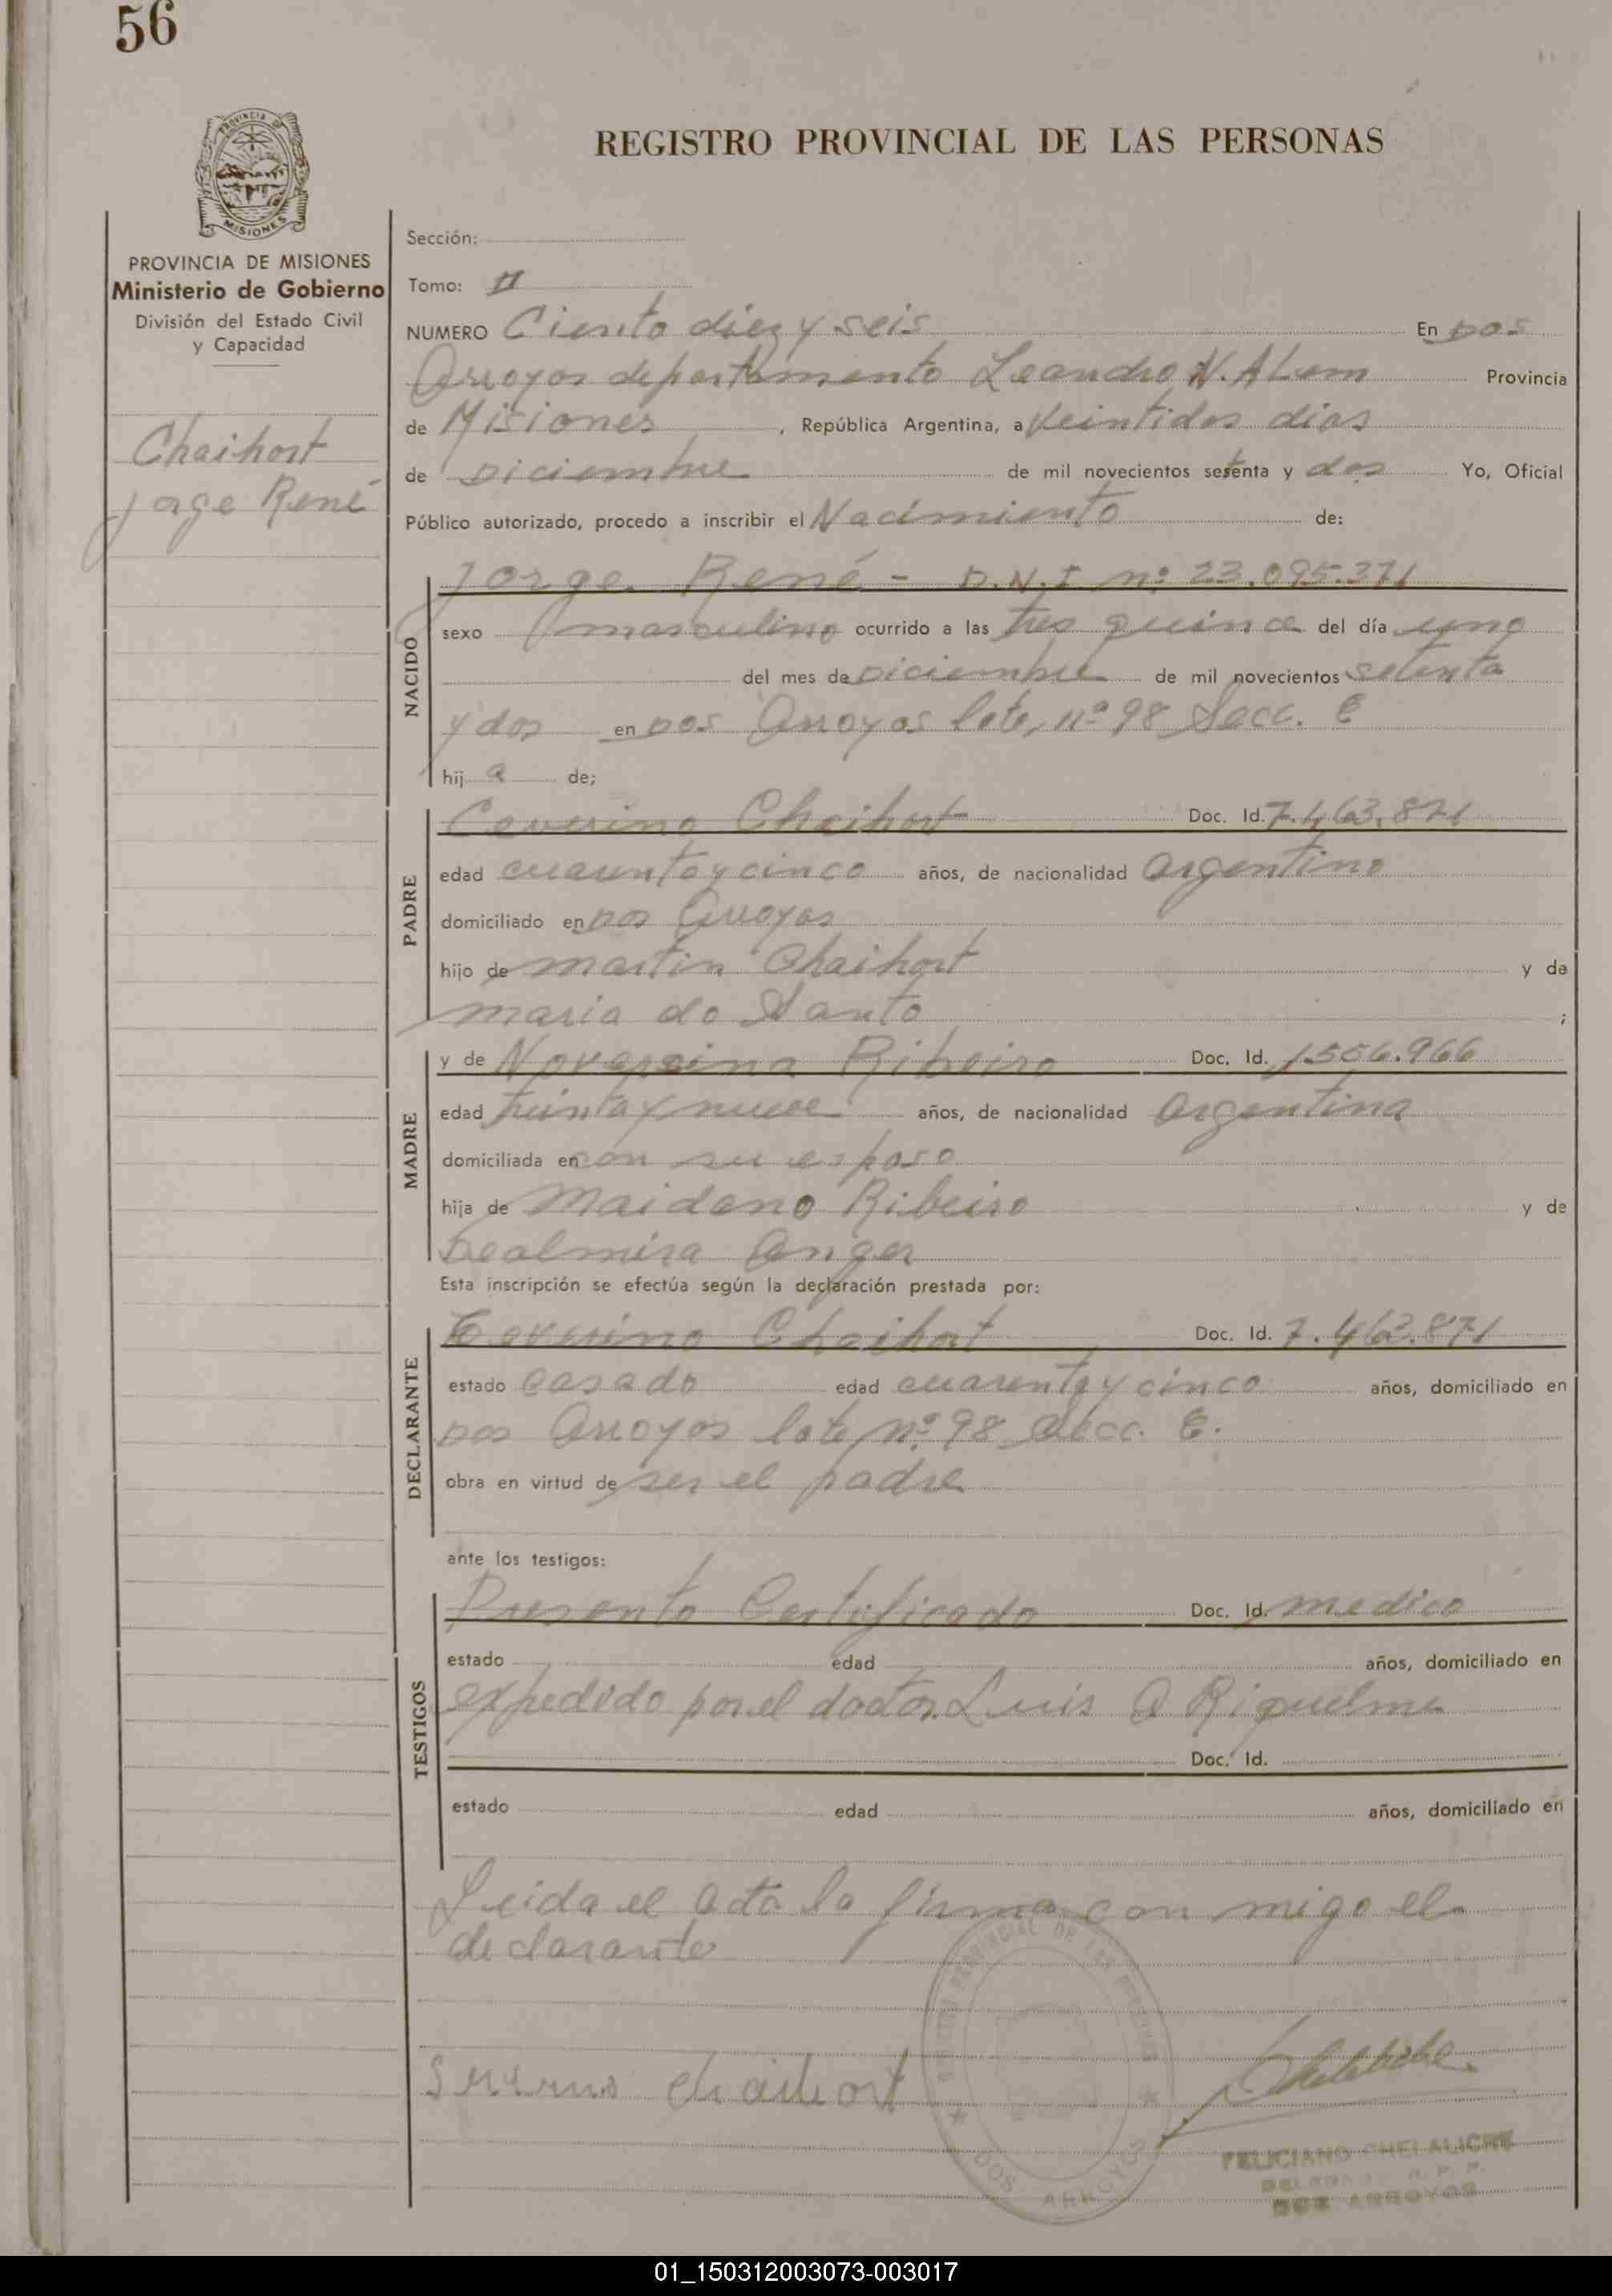 56
REGISTRO PROVINCIAL DE LAS PERSONAS
PROVINCIA DE MISIONES
Ministerio de Gobierno
División del Estado Civil
y Capacidad
Chaihort
Jorge René
Sección:
Tomo: II
NUMERO Ciento diez y seis En Dos
Arroyos departamento Leandro N. ALem Provincia
de Misiones, República Argentina, a Veintidos dias
de Diciembre de mil novecientos setenta y dos Yo, Oficial
Público autorizado, procedo a inscribir el Nacimiento de:
NACIDO
Jorge René - D.N.I nº 23.095.371
sexo masculino ocurrido a las tres quince del día uno
del mes de Diciembre de mil novecientos setenta
y dos en Dos Arroyos lote nº 98 Secc. E
hij a de;
PADRE
Ceverino Chaihort Doc. Id. 7.463.871
edad cuarenta y cinco años, de nacionalidad Argentino
domiciliado en Dos Arroyos
hijo de Martin Chaihort y de
Maria do Santo ;
MADRE
y de Ribeiro Doc. Id. 1.556.966
edad treinta y nueve años, de nacionalidad Argentina
domiciliada en con su esposo
hija de Maidano Ribeiro y de
Dealmira Anger
Esta inscripción se efectúa según la declaración prestada por:
DECLARANTE
Ceverino Chaihort Doc. Id. 7.463.871
estado casado edad cuarenta y cinco años, domiciliado en
Dos Arroyos lote nº 98 Secc. E.
obra en virtud de ser el padre
ante los testigos:
TESTIGOS
Presento Certificado Doc. Id. medico
estado edad años, domiciliado en
expedido por el doctor Luis A Riquelme
Doc. Id.
estado edad años, domiciliado en
Leida el acta la firma con migo el
declarante
chaihort
DOS ARROYOS
FELICIANO CHELALICHE
DELEGADO R. P. P.
DOS ARROYOS
01_150312003073-003017